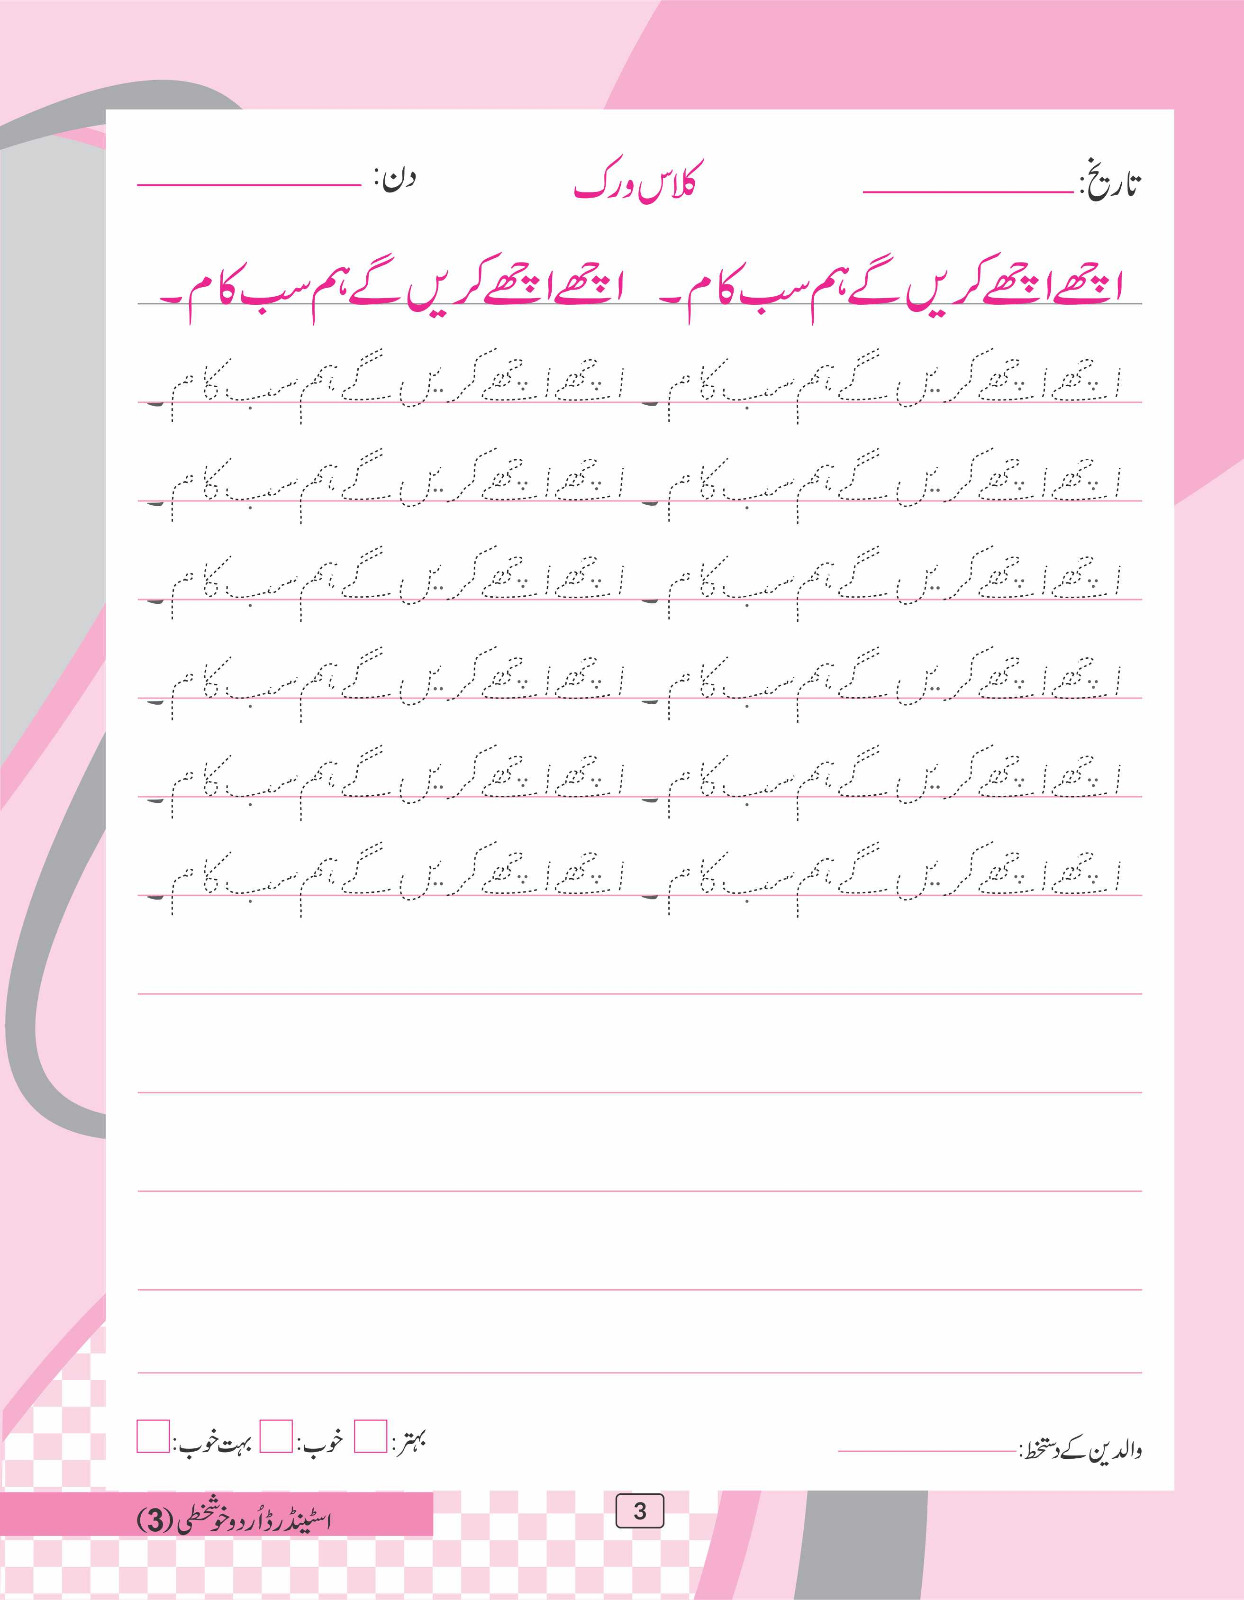 تاریخ: کلاس ورک دن:
اچھے اچھے کریں گے ہم سب کام۔ اچھے اچھے کریں گے ہم سب کام۔
اچھے اچھے کریں گے ہم سب کام۔ اچھے اچھے کریں گے ہم سب کام۔
اچھے اچھے کریں گے ہم سب کام۔ اچھے اچھے کریں گے ہم سب کام۔
اچھے اچھے کریں گے ہم سب کام۔ اچھے اچھے کریں گے ہم سب کام۔
اچھے اچھے کریں گے ہم سب کام۔ اچھے اچھے کریں گے ہم سب کام۔
اچھے اچھے کریں گے ہم سب کام۔ اچھے اچھے کریں گے ہم سب کام۔
اچھے اچھے کریں گے ہم سب کام۔ اچھے اچھے کریں گے ہم سب کام۔
والدین کے دستخط: بہتر: خوب: بہت خوب:
3
اسٹینڈرڈ اُردو خوشخطی (3)